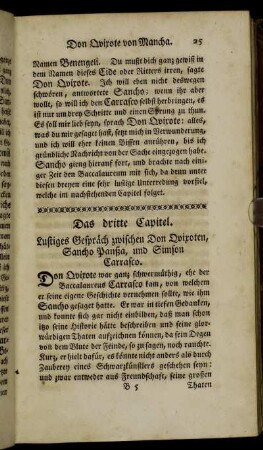 Don Qvixote von Mancha. 25
Namen Benengeli. Du mußt dich ganz gewiß in
dem Namen dieses Cids oder Ritters irren, sagte
Don Qvixote. Ich will eben nicht deswegen
schwören, antwortete Sancho: wenn ihr aber
wollt, so will ich den Carrasco selbst herbringen, es
ist nur um drey Schritte und einen Sprung zu thun.
Es soll mir lieb seyn, sprach Don Qvixote: alles,
was du mir gesaget hast, setzt mich in Verwunderung,
und ich will eher keinen Bissen anrühren, bis ich
gründliche Nachricht von der Sache eingezogen habe.
Sancho gieng hierauf fort, und brachte nach eini-
ger Zeit den Baccalaureum mit sich, da denn unter
diesen dreyen eine sehr lustige Unterredung vorfiel,
welche im nachstehenden Capitel folget.
Das dritte Capitel.
Lustiges Gespräch zwischen Don Qvixoten,
Sancho Panßa, und Simson
Carrasco.
Don Qvixote war ganz schwermüthig, ehe der
Baccalaureus Carrasco kam, von welchem
er seine eigene Geschichte vernehmen sollte, wie ihm
Sancho gesaget hatte. Er war in tiefen Gedanken,
und konnte sich gar nicht einbilden, daß man schon
itzo seine Historie hätte beschreiben und seine glor-
würdigen Thaten aufzeichnen können, da sein Degen
von dem Blute der Feinde, so zu sagen, noch rauchte.
Kurz, er hielt dafür, es könnte nicht anders als durch
Zauberey eines Schwarzkünstlers geschehen seyn:
und zwar entweder aus Freundschaft, seine großen
B 5 Thaten